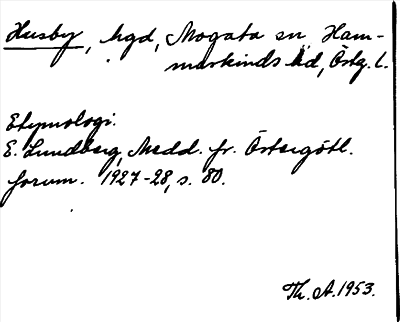 Husby, hgd, Mogata sn Ham-
markinds hd, Östg. l.
Etymologi.
E. Lundberg, Medd. fr. Östergötl.
forum. 1927-28, s. 80.
Th. A. 1953.